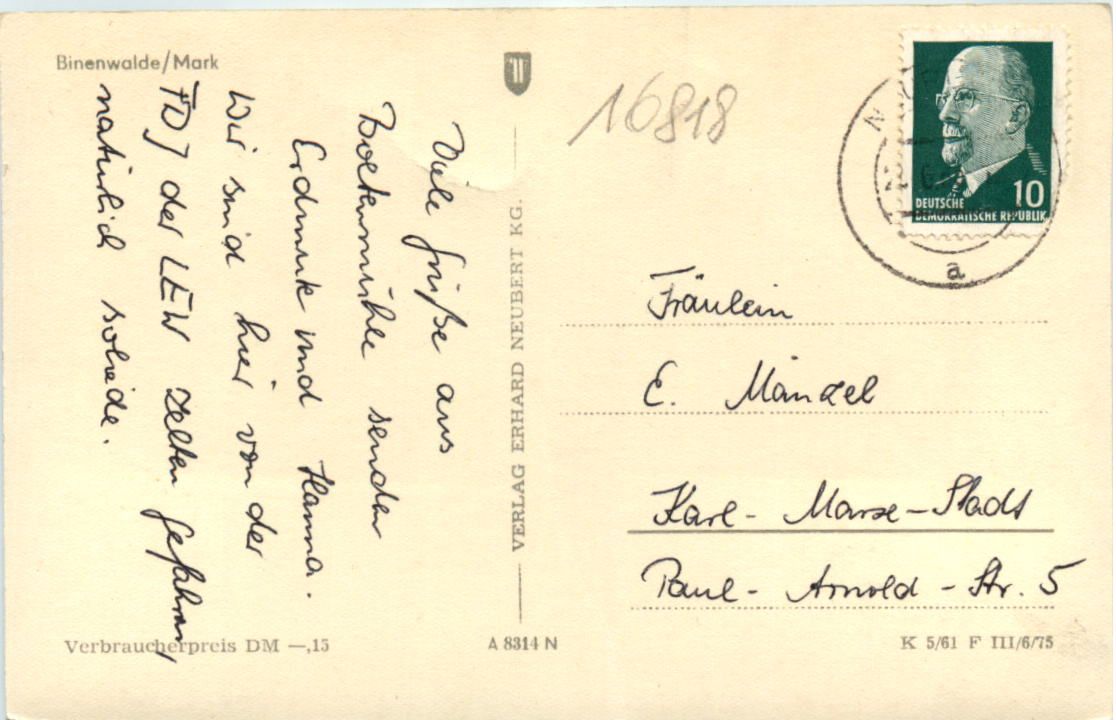 Binenwalde/Mark
Viele Grüße aus
Boltenmühle senden
Erdmute und Hanna.
Wir sind hier von der
FDJ der LEW zelten gefahren,
natürlich solide.
Verbraucherpreis DM —,15
VERLAG ERHARD NEUBERT KG.
A 8314 N
16818
10
DEUTSCHE
DEMOKRATISCHE REPUBLIK
a
Fräulein
E. Mänzel
Karl-Marx-Stadt
Paul-Arnold-Str. 5
K 5/61 F III/6/75